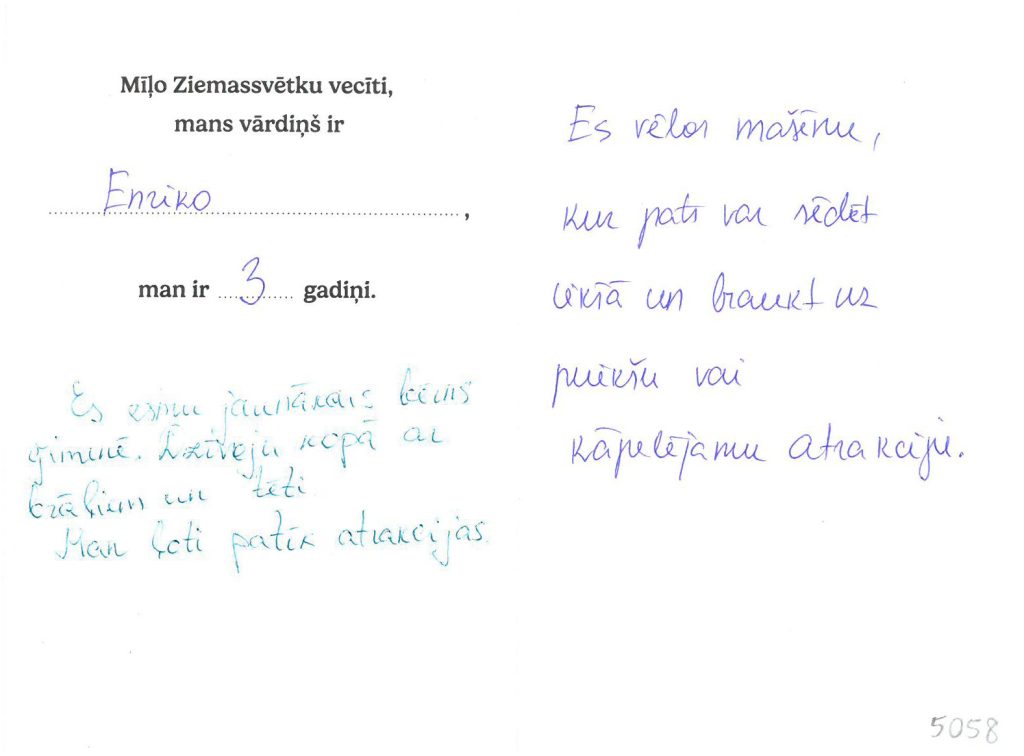 Mīļo Ziemassvētku vecīti,
mans vārdiņš ir
Enriko,
man ir 3 gadiņi.
Es esmu jaunākais bērns
ģimenē. Dzīvoju kopā ar
brāļiem un tēti.
Man ļoti patīk atrakcijas
Es vēlos mašīnu,
kur pats var sēdēt
iekšā un braukt uz
vai
kāpelējamu atrakciju.
5058